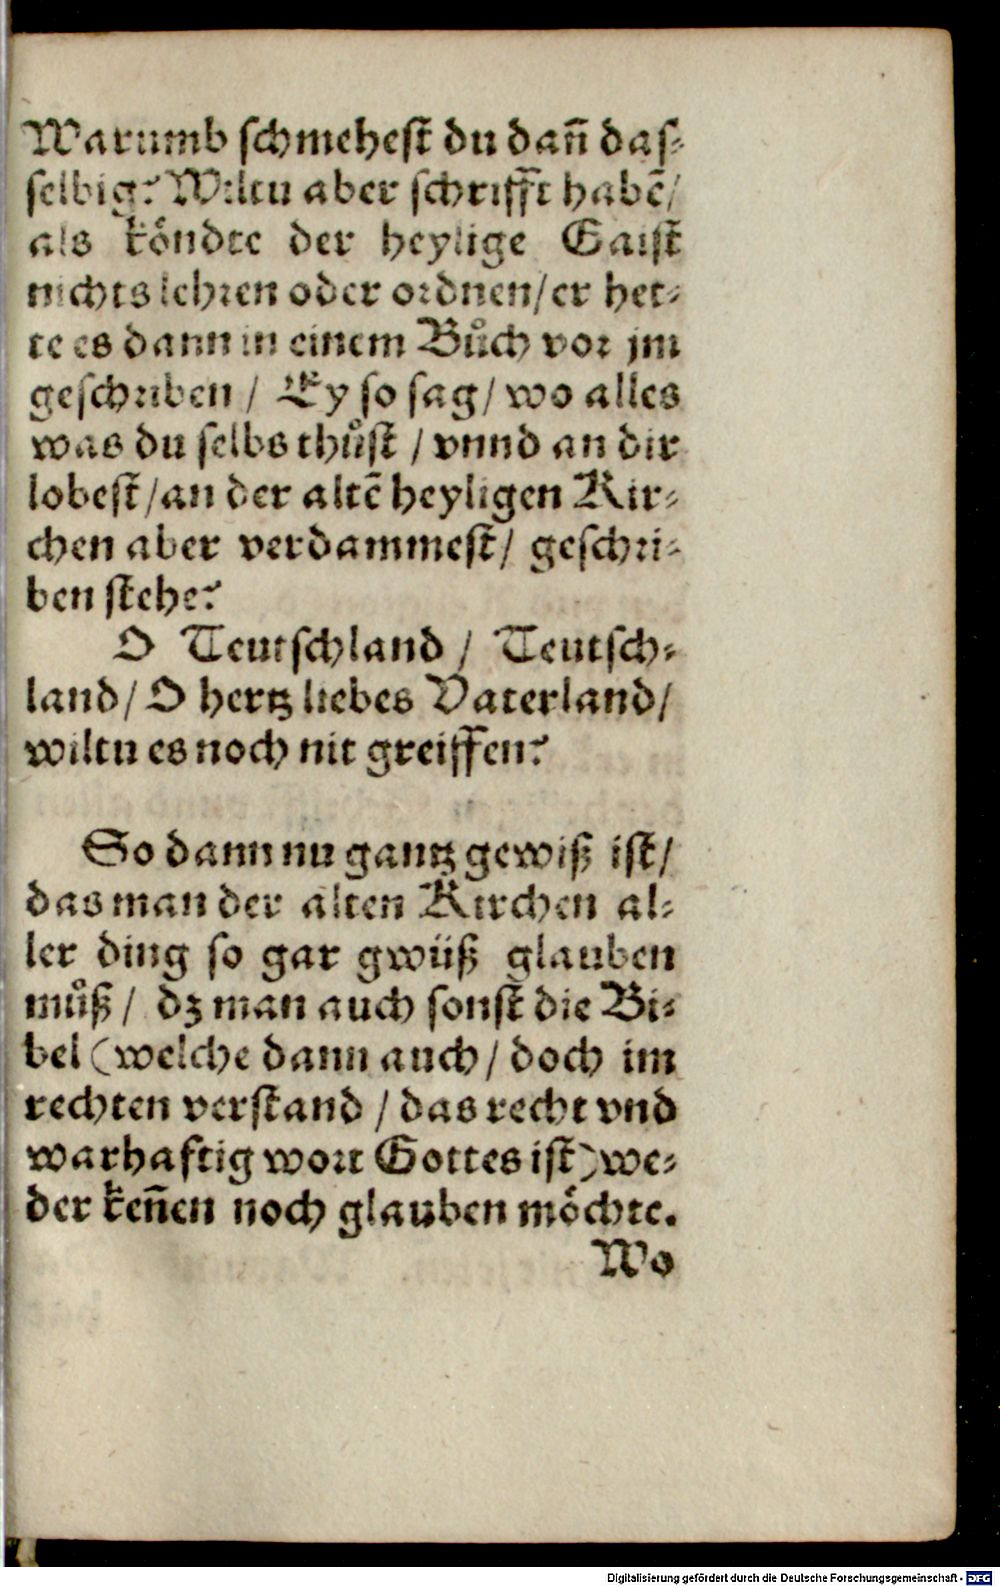 Warumb schmehest du dañ das⸗
selbig? Wiltu aber schrifft habẽ/
als köndte der heylige Gaist
nichts lehren oder ordnen/er het⸗
te es dann in einem Bůch vor jm
geschriben / Ey so sag/ wo alles
was du selbs thůst / vnnd an dir
lobest/an der altẽ heyligen Kir⸗
chen aber verdammest/ geschri⸗
ben stehe?
O Teutschland / Teutsch⸗
land/ O hertz liebes Vaterland/
wiltu es noch nit greiffen?
So dann nu gantz gewiß ist/
das man der alten Kirchen al⸗
ler ding so gar gwüß glauben
můß / dz man auch sonst die Bi⸗
bel (welche dann auch/ doch im
rechten verstand / das recht vnd
warhaftig wort Gottes ist) we⸗
der keñen noch glauben möchte.
Wo
Digitalisierung gefördert durch die Deutsche Forschungsgemeinschaft - DFG